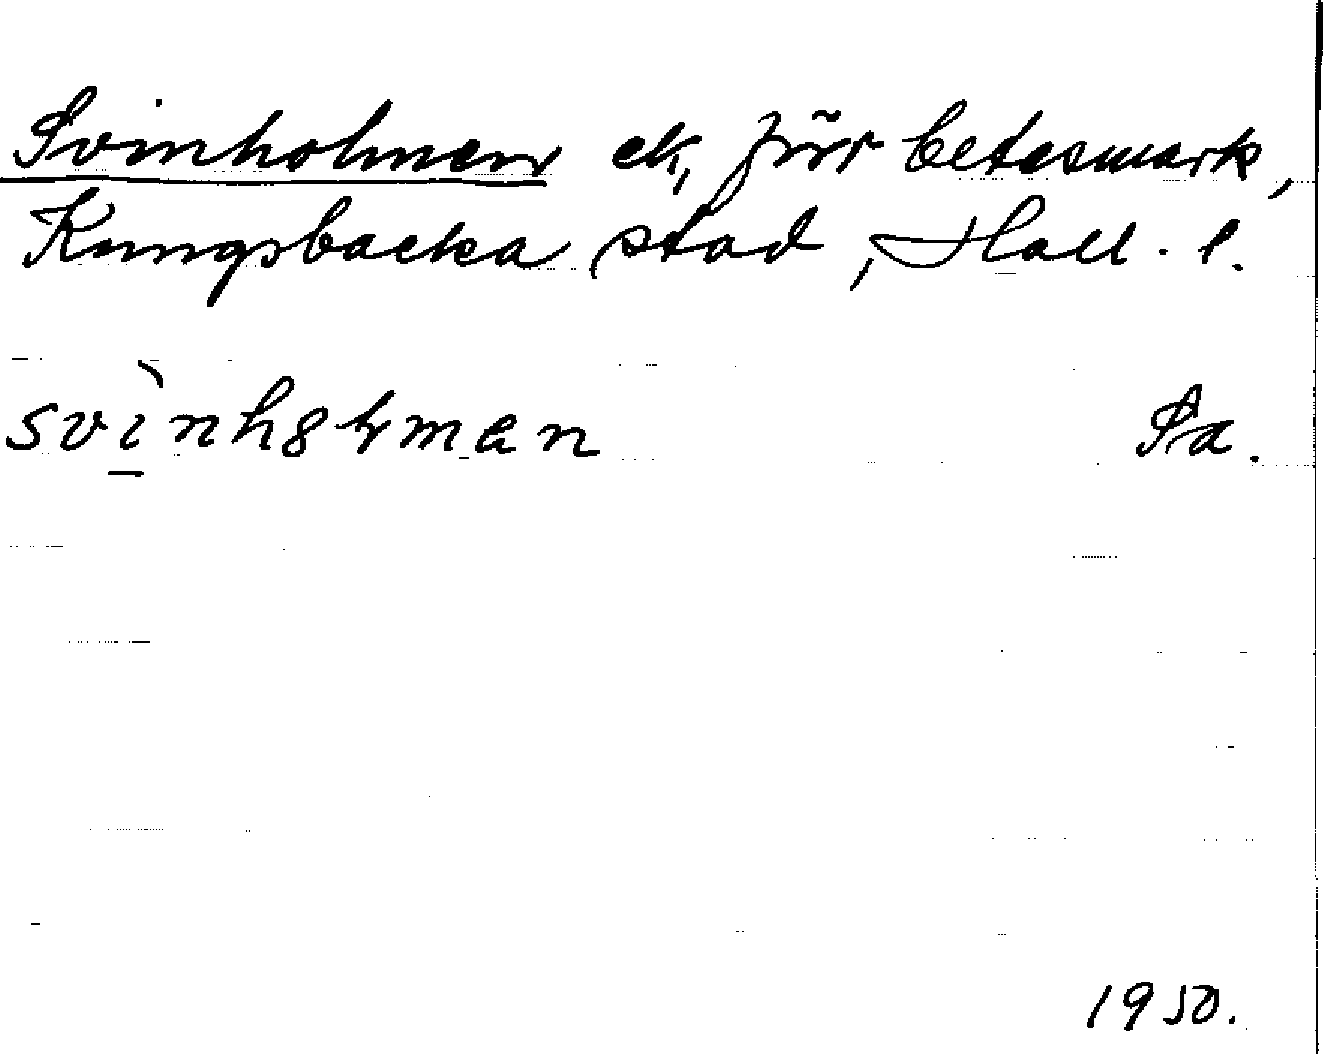 Svinholmen ek, förr betesmark,
Kungsbacka stad, Hall. l.
Sa.
1950.